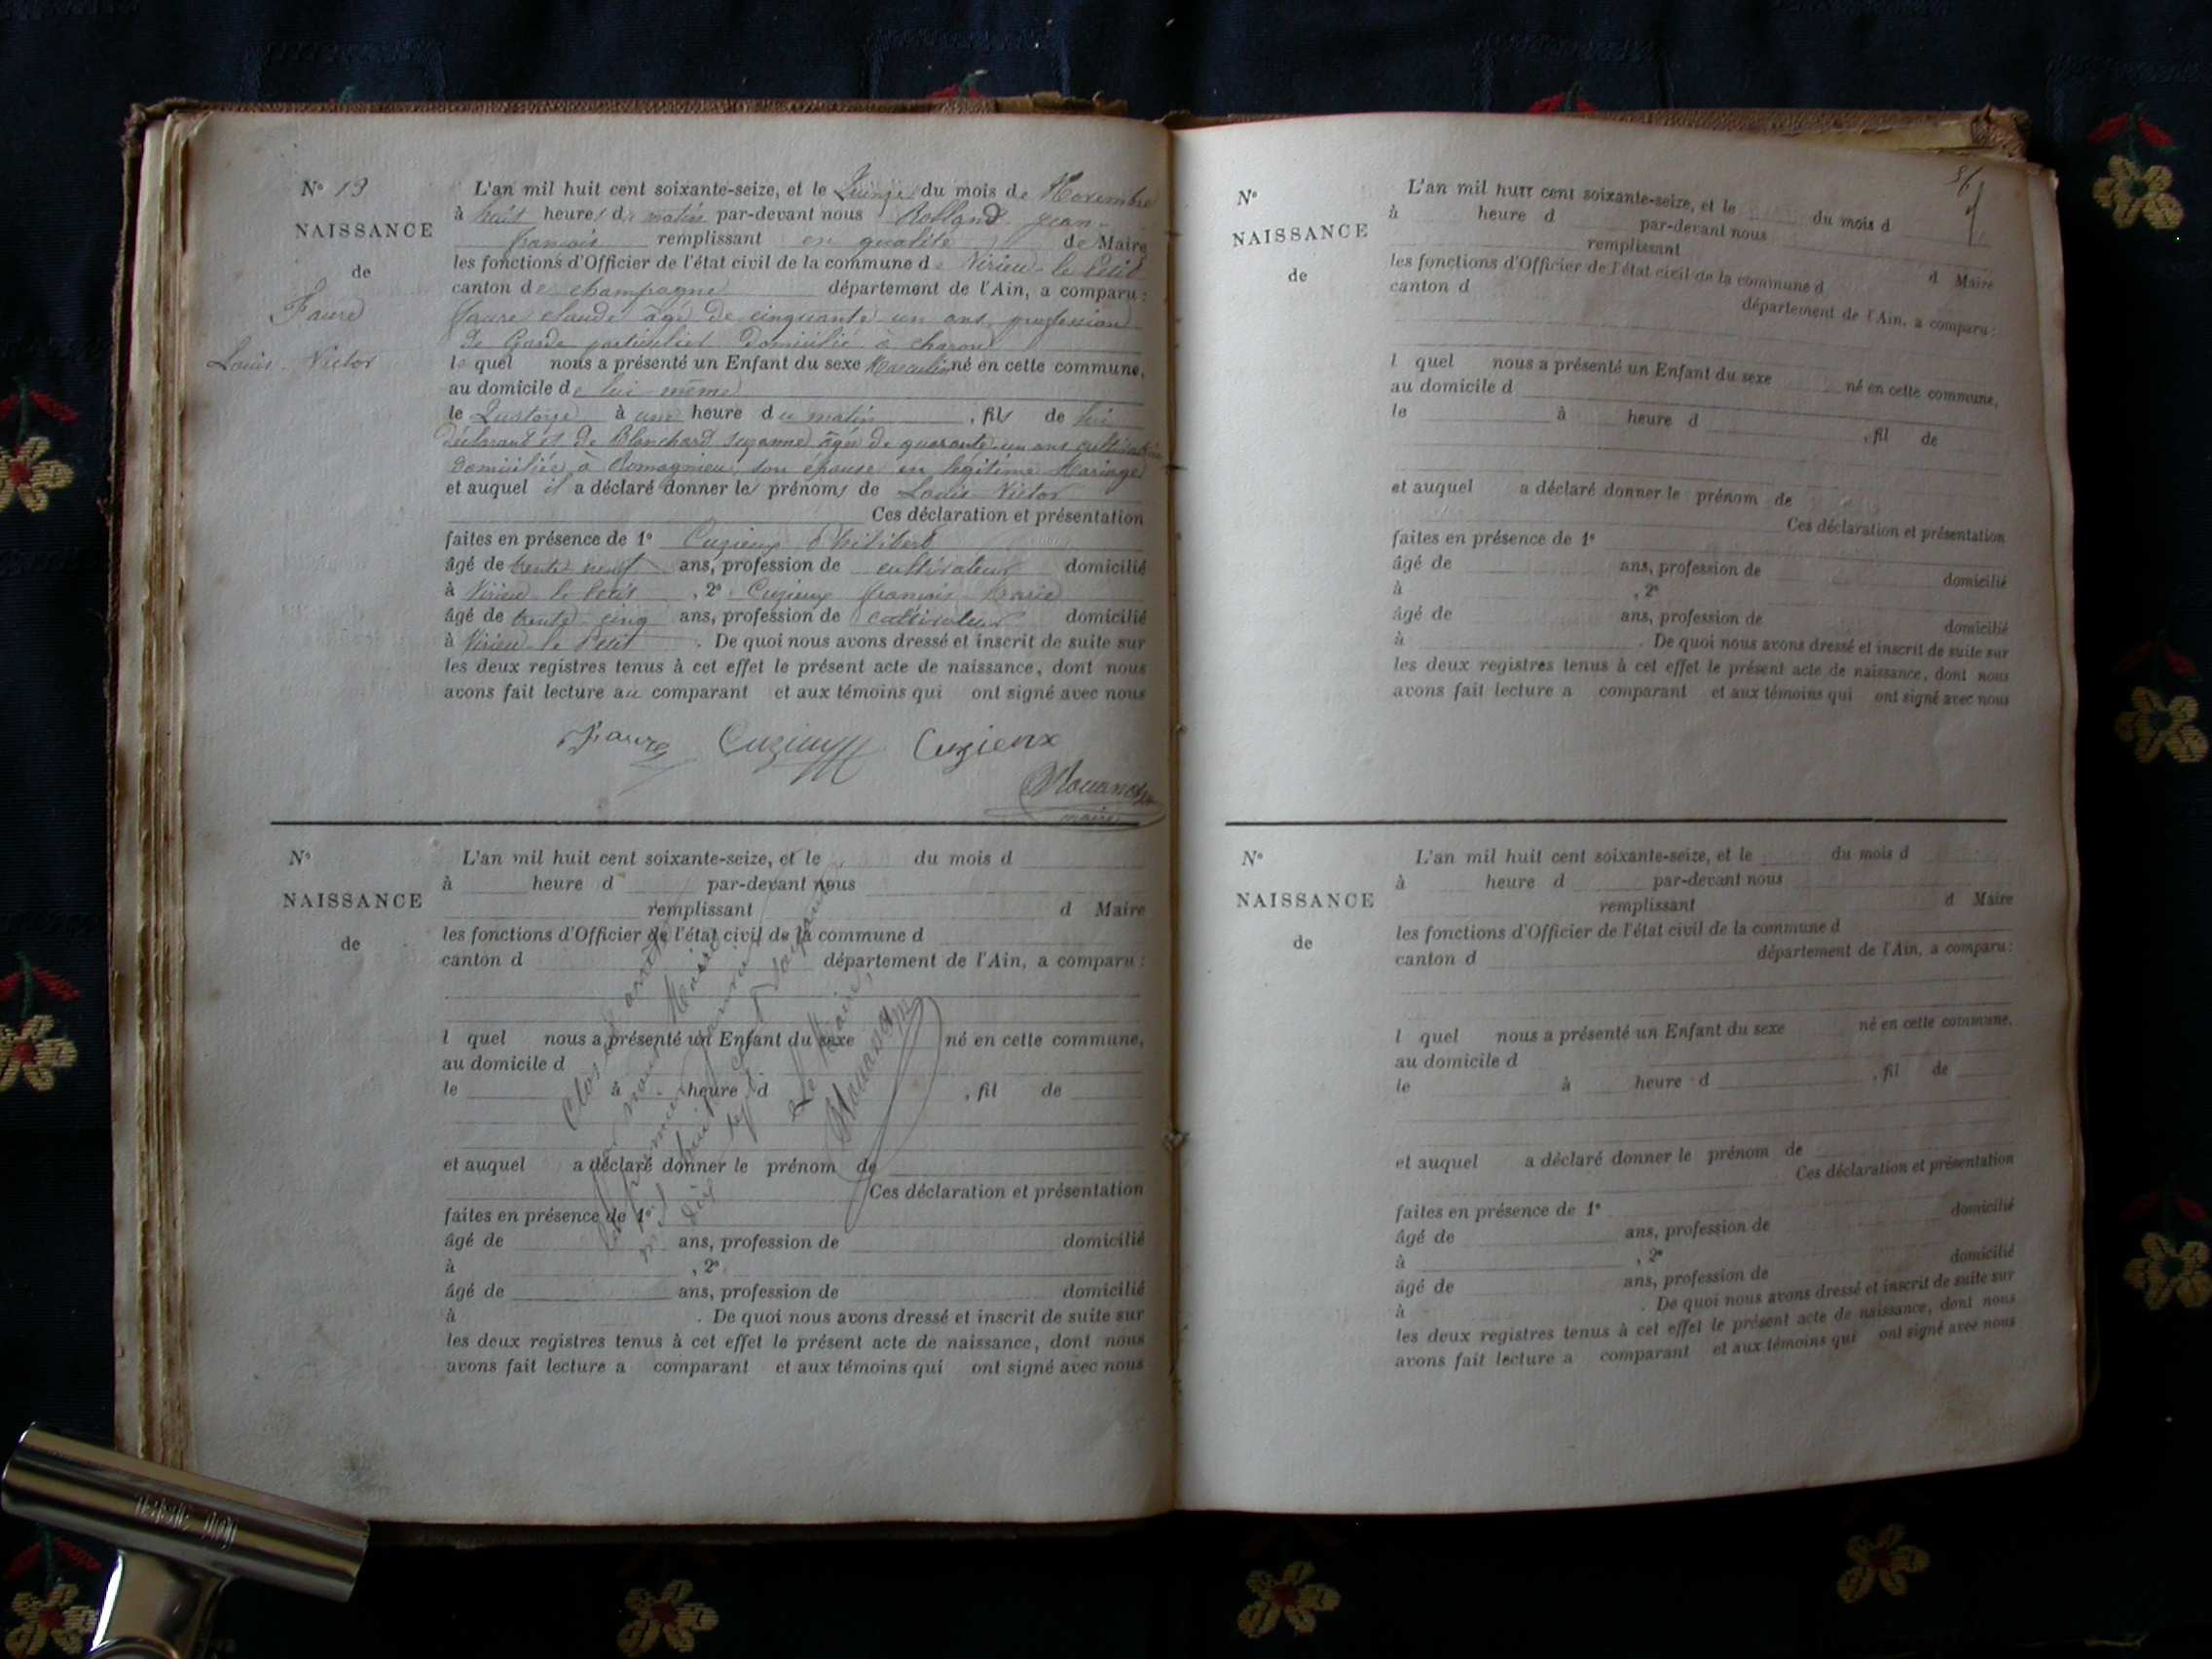 N° 19
NAISSANCE
de
Faure
Louis Victor
L'an mil huit cent soixante-seize, et le Quinze du mois de Novembre
à huit heures du matin par-devant nous Rolland jean
françois remplissant en qualité de Maire
les fonctions d'Officier de l'état civil de la commune de Virieu le Petit
canton de champagne département de l'Ain, a comparu :
faure claude âgé de cinquante un ans profession
de Garde particulier Domicilié à
le quel nous a présenté un Enfant du sexe Masculin né en cette commune,
au domicile de lui même
le Quatorze à une heure du matin , fils de lui
déclarant et de Blanchard suzanne âgée de quarante un ans cultivatrice
domiciliée à Romagnieu son épouse en légitime Mariage
et auquel il a déclaré donner les prénoms de Louis Victor
Ces déclaration et présentation
faites en présence de 1° Cuzieux Philibert
âgé de trente neuf ans, profession de cultivateur domicilié
à Virieu le Petit , 2° Cuzieux françois Marie
âgé de trente cinq ans, profession de cultivateur domicilié
à Virieu le Petit . De quoi nous avons dressé et inscrit de suite sur
les deux registres tenus à cet effet le présent acte de naissance, dont nous
avons fait lecture au comparant et aux témoins qui ont signé avec nous
Faure Cuzieux Cuzieux
maire
N°
NAISSANCE
de
L'an mil huit cent soixante-seize, et le du mois d
à heure d par-devant nous
remplissant d Maire
les fonctions d'Officier de l'état civil de la commune d
canton d département de l'Ain, a comparu :
l quel nous a présenté un Enfant du sexe né en cette commune,
au domicile d
le à heure d , fil de
et auquel a déclaré donner le prénom de
Ces déclaration et présentation
faites en présence de 1°
âgé de ans, profession de domicilié
à , 2°
âgé de ans, profession de domicilié
à . De quoi nous avons dressé et inscrit de suite sur
les deux registres tenus à cet effet le présent acte de naissance, dont nous
avons fait lecture a comparant et aux témoins qui ont signé avec nous
Clos et arrêté
par nous Maire
le premier janvier
mil huit cent soixante
dix sept
Le Maire
N°
NAISSANCE
de
L'an mil huit cent soixante-seize, et le du mois d
à heure d par-devant nous
remplissant d Maire
les fonctions d'Officier de l'état civil de la commune d
canton d département de l'Ain, a comparu :
l quel nous a présenté un Enfant du sexe né en cette commune,
au domicile d
le à heure d , fil de
et auquel a déclaré donner le prénom de
Ces déclaration et présentation
faites en présence de 1°
âgé de ans, profession de domicilié
à , 2°
âgé de ans, profession de domicilié
à . De quoi nous avons dressé et inscrit de suite sur
les deux registres tenus à cet effet le présent acte de naissance, dont nous
avons fait lecture a comparant et aux témoins qui ont signé avec nous
N°
NAISSANCE
de
L'an mil huit cent soixante-seize, et le du mois d
à heure d par-devant nous
remplissant d Maire
les fonctions d'Officier de l'état civil de la commune d
canton d département de l'Ain, a comparu :
l quel nous a présenté un Enfant du sexe né en cette commune,
au domicile d
le à heure d , fil de
et auquel a déclaré donner le prénom de
Ces déclaration et présentation
faites en présence de 1°
âgé de ans, profession de domicilié
à , 2°
âgé de ans, profession de domicilié
à . De quoi nous avons dressé et inscrit de suite sur
les deux registres tenus à cet effet le présent acte de naissance, dont nous
avons fait lecture a comparant et aux témoins qui ont signé avec nous